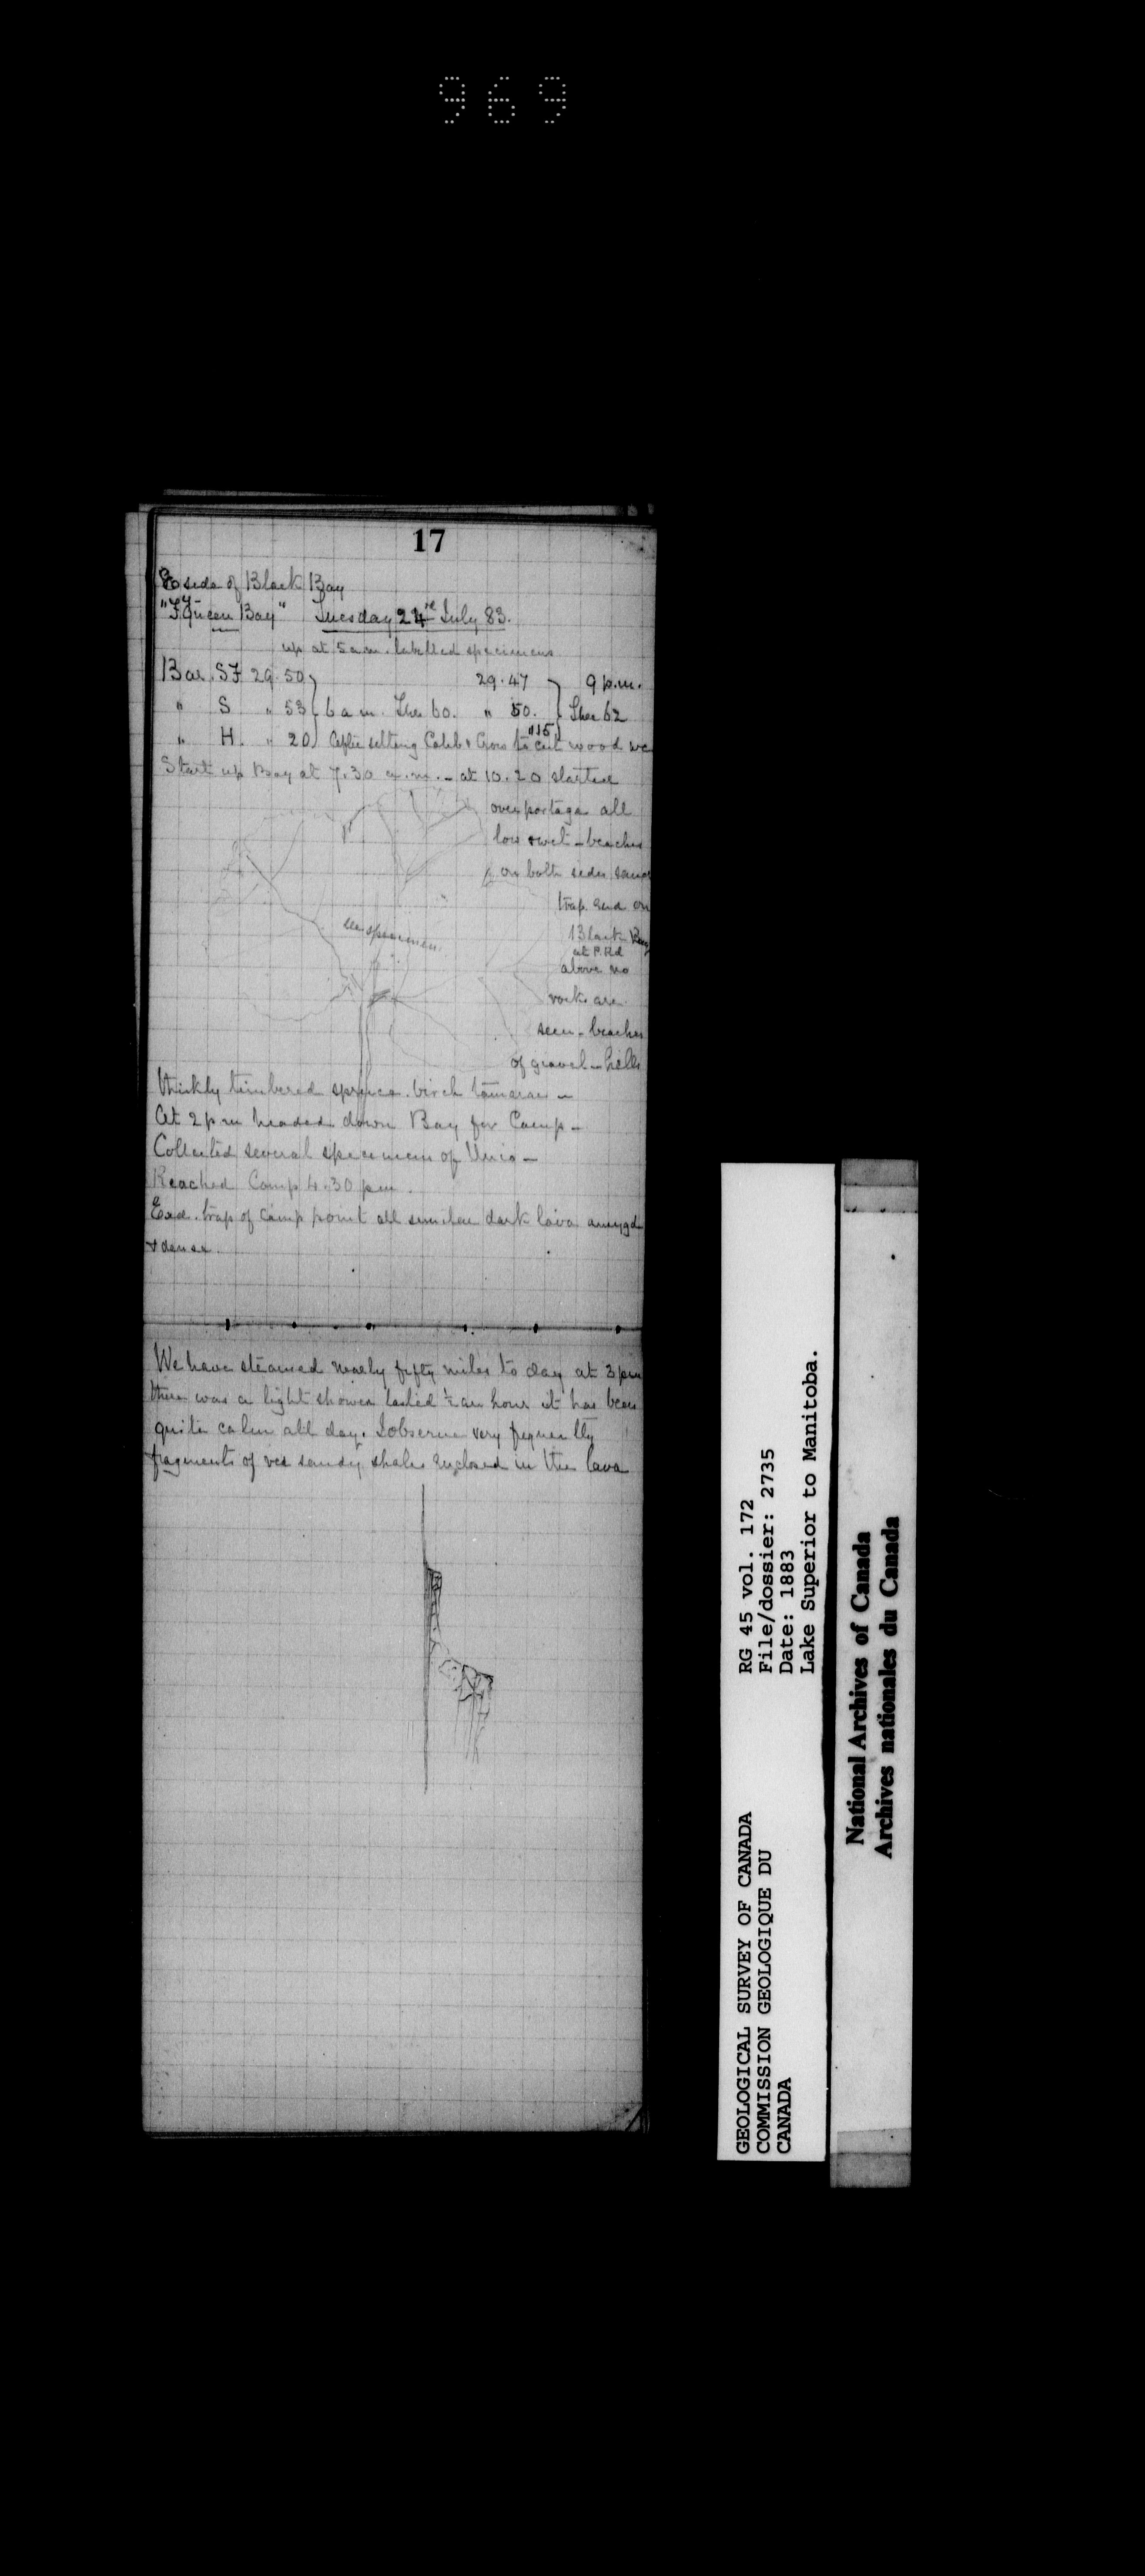 969
17
E side of Black Bay
"F. Queen Bay" Tuesday 24 July 83.
up at 5 am. labelled specimens
Bar. SF 29.50 29.47 9 p.m.
" S " 53 6 am Ther 60. " 50. Ther 62
" H. " 20 After setting Caleb & to cut wood we
" 15
Start up Bay at 7.30 a.m. - at 10.20 started
over portage all
low & wet - beaches
on both sides
trap. end on
Black Bay
at P. Rd
above no
rocks are
seen - beaches
of gravel - hills
see specimen
thickly timbered spruce. birch tamarac -
At 2 pm headed down Bay for Camp -
Collected several specimens of Unio -
Reached Camp 4.30 pm.
trap of camp point all similar dark lava amygd
& dense
We have steamed nearly fifty miles to day at 3 pm
there was a light shower lasted ½ an hour it has been
quite calm all day. I observe very frequently
fragments of red sandy shales enclosed in the lava
GEOLOGICAL SURVEY OF CANADA
COMMISSION GEOLOGIQUE DU
CANADA
RG 45 vol. 172
File/dossier: 2735
Date: 1883
Lake Superior to Manitoba.
National Archives of Canada
Archives nationales du Canada